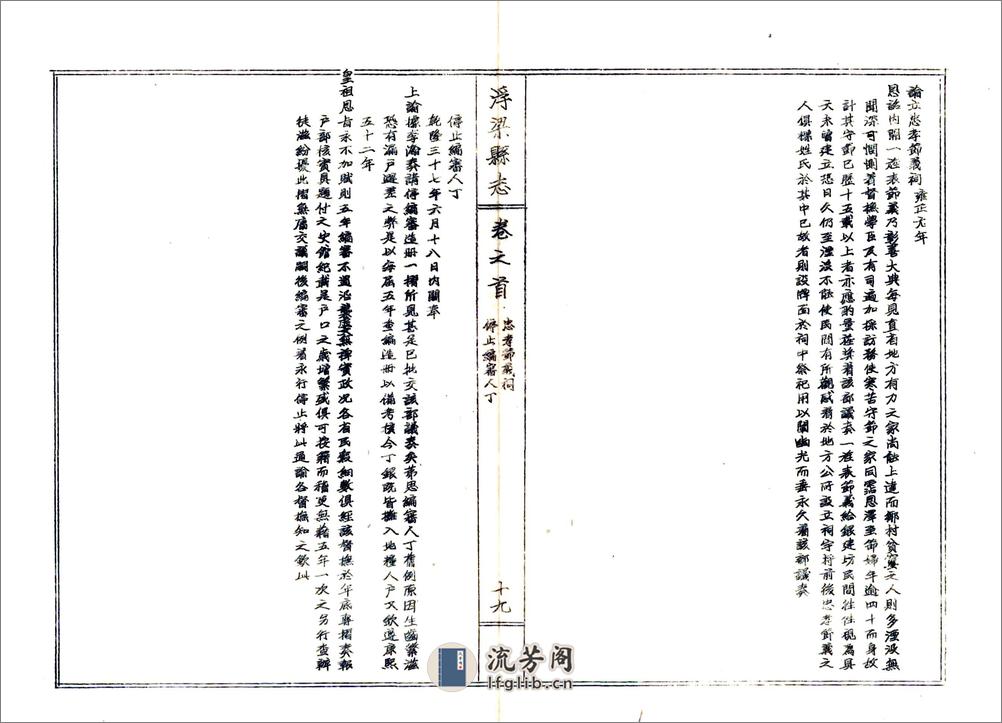 諭立忠孝節義祠 雍正元年
恩詔內開一旌表節義乃彰善大典每見直省地方有力之家尚能上達而鄉村貧窶之人則多湮沒無
聞深可憫惻着督撫學臣及有司遍加採訪務使寒苦守節之家同霑恩澤至節婦年逾四十而身故
計其守節已歷十五載以上者亦應酌量旌奬着該部議奏一旌表節義給銀建坊民間往往視為具
文未曾建立恐日久仍至湮沒不能使民間有所觀感着於地方公所設立祠宇将前後忠孝節義之
人俱標姓氏於其中已故者則設牌面於祠中祭祀用以闡幽光而垂永久着該部議奏
浮梁縣志 卷之首
忠孝節義祠
停止編審人丁
十九
停止編審人丁
乾隆三十七年六月十八日內閣奉
上諭據李瀚奏請停編審造冊一摺所見甚是已批交該部議奏矣第思編審人丁舊例原因生齒繁滋
恐有漏戶避差之弊是以每屆五年查編造冊以備考核今丁銀既皆攤入地糧人户又欽遵康熙
五十二年
皇祖恩旨永不加賦則五年編審不過沿襲虛文無裨實政况各省民穀細數俱經該督撫於年底專摺奏報
户部核實具題付之史館紀載是户口之歲增繁盛俱可按籍而稽更無藉五年一次之另行查辦
徒滋紛擾此摺無庸交議嗣後編審之例着永行停止將此通諭各督撫知之欽此
流芳阁
lfglib.cn